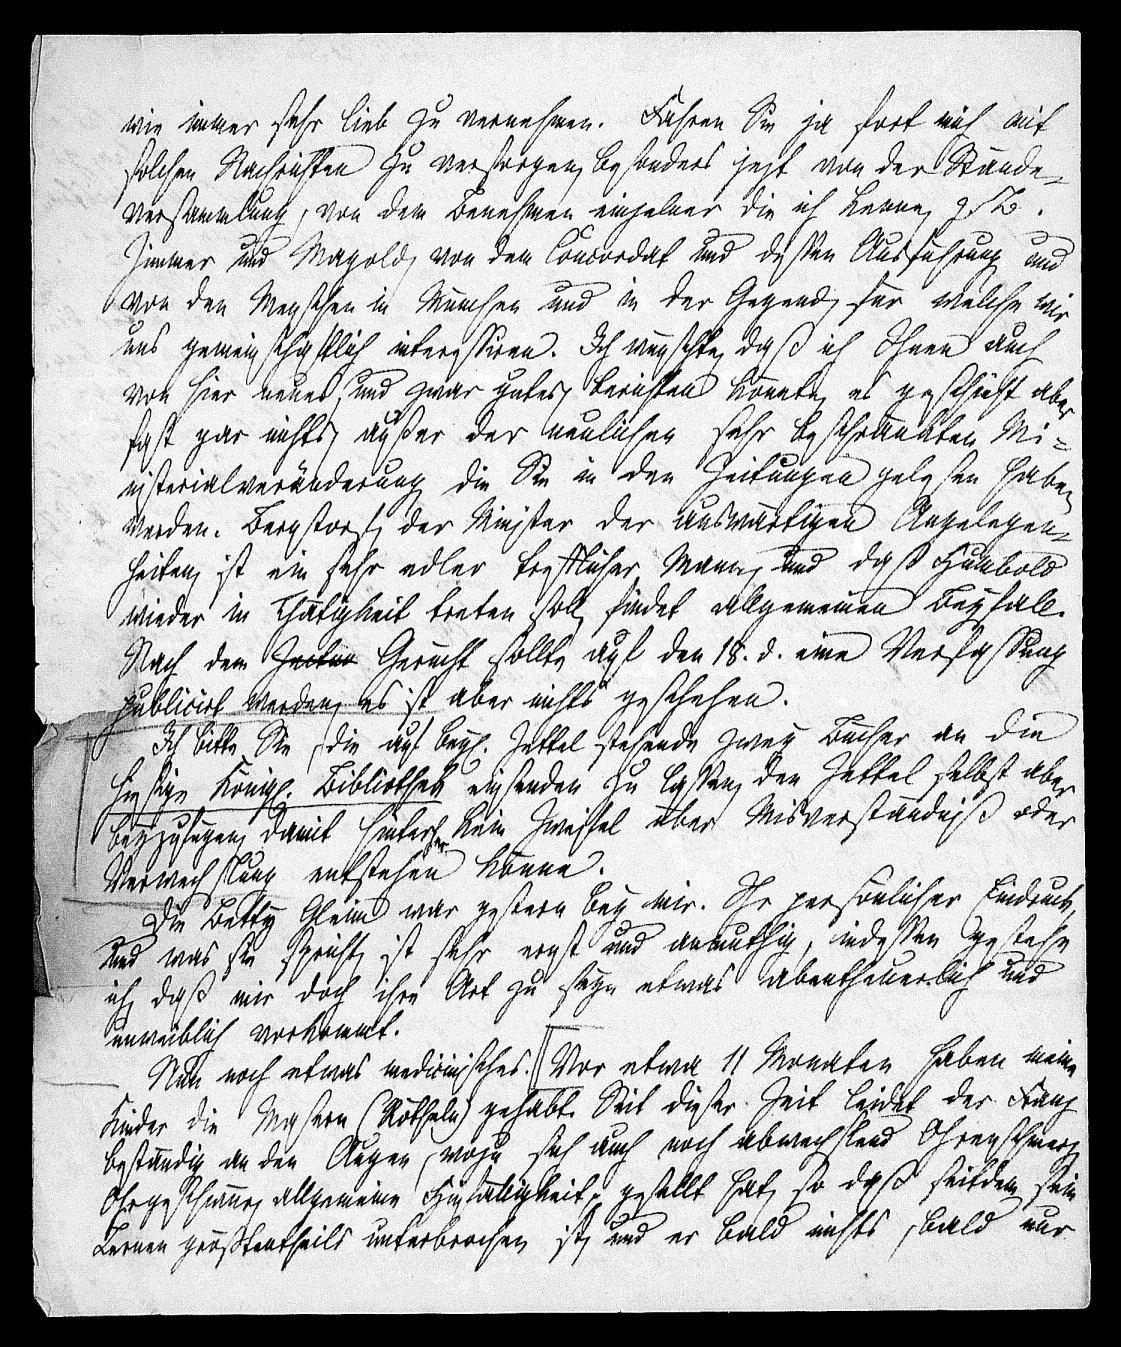 wie immer sehr lieb zu vernehmen. Fahren Sie ja fort mich mit
solchen Nachrichten zu versorgen, besonders jezt von der Stände-
versammlung, von dem Benehmen einzelner die ich kenne, z. B.
Zimmer und Magold, von dem Concordat und dessen Ausführung und
von den Menschen in München und in der Gegend, für welche wir
uns gemeinschaftlich interessiren. Ich wünschte, daß ich Ihnen auch
von hier neues, und zwar gutes, berichten könnte, es geschieht aber
fast gar nichts, außer der neulichen sehr beschränkten Mi-
nisterialveränderung, die Sie in den Zeitungen gelesen haben
werden. Bernstorf, der Minister der auswärtigen Angelegen-
heiten, ist ein sehr edler trefflicher Mann, und daß Humbold
wieder in Thätigkeit treten soll, findet allgemeinen Beyfall.
Nach dem Gerücht sollte auf den 18. d. eine Verfassung
publicirt werden, es ist aber nichts geschehen.
Ich bitte Sie, die auf beyl. Zettel stehende zwey Bücher an die
hiesige Königl. Bibliothek einsenden zu lassen, den Zettel selbst aber
beyzulegen, damit hinterher kein Zweifel über Misverständniß oder
Verwechslung entstehen könne.
Die Betty Gleim war gestern bey mir. Ihr persönlicher Eindruck,
und was sie spricht, ist sehr ernst und anmuthig, indessen gestehe
ich, daß mir doch ihre Art zu seyn etwas abentheuerlich und
unweiblich vorkommt.
Nun noch etwas medicinisches. Vor etwa 11 Monaten haben meine
Kinder die Masern (Rötheln) gehabt. Seit dieser Zeit leidet der Franz
beständig an den Augen, wozu sich auch noch abwechslend Ohrenschmerz,
Ohrgeschwüre, allgemeine Hinfälligkeit, gesellt hat, so daß seitdem sein
Lernen großtentheils unterbrochen ist, und er bald nichts, bald nur